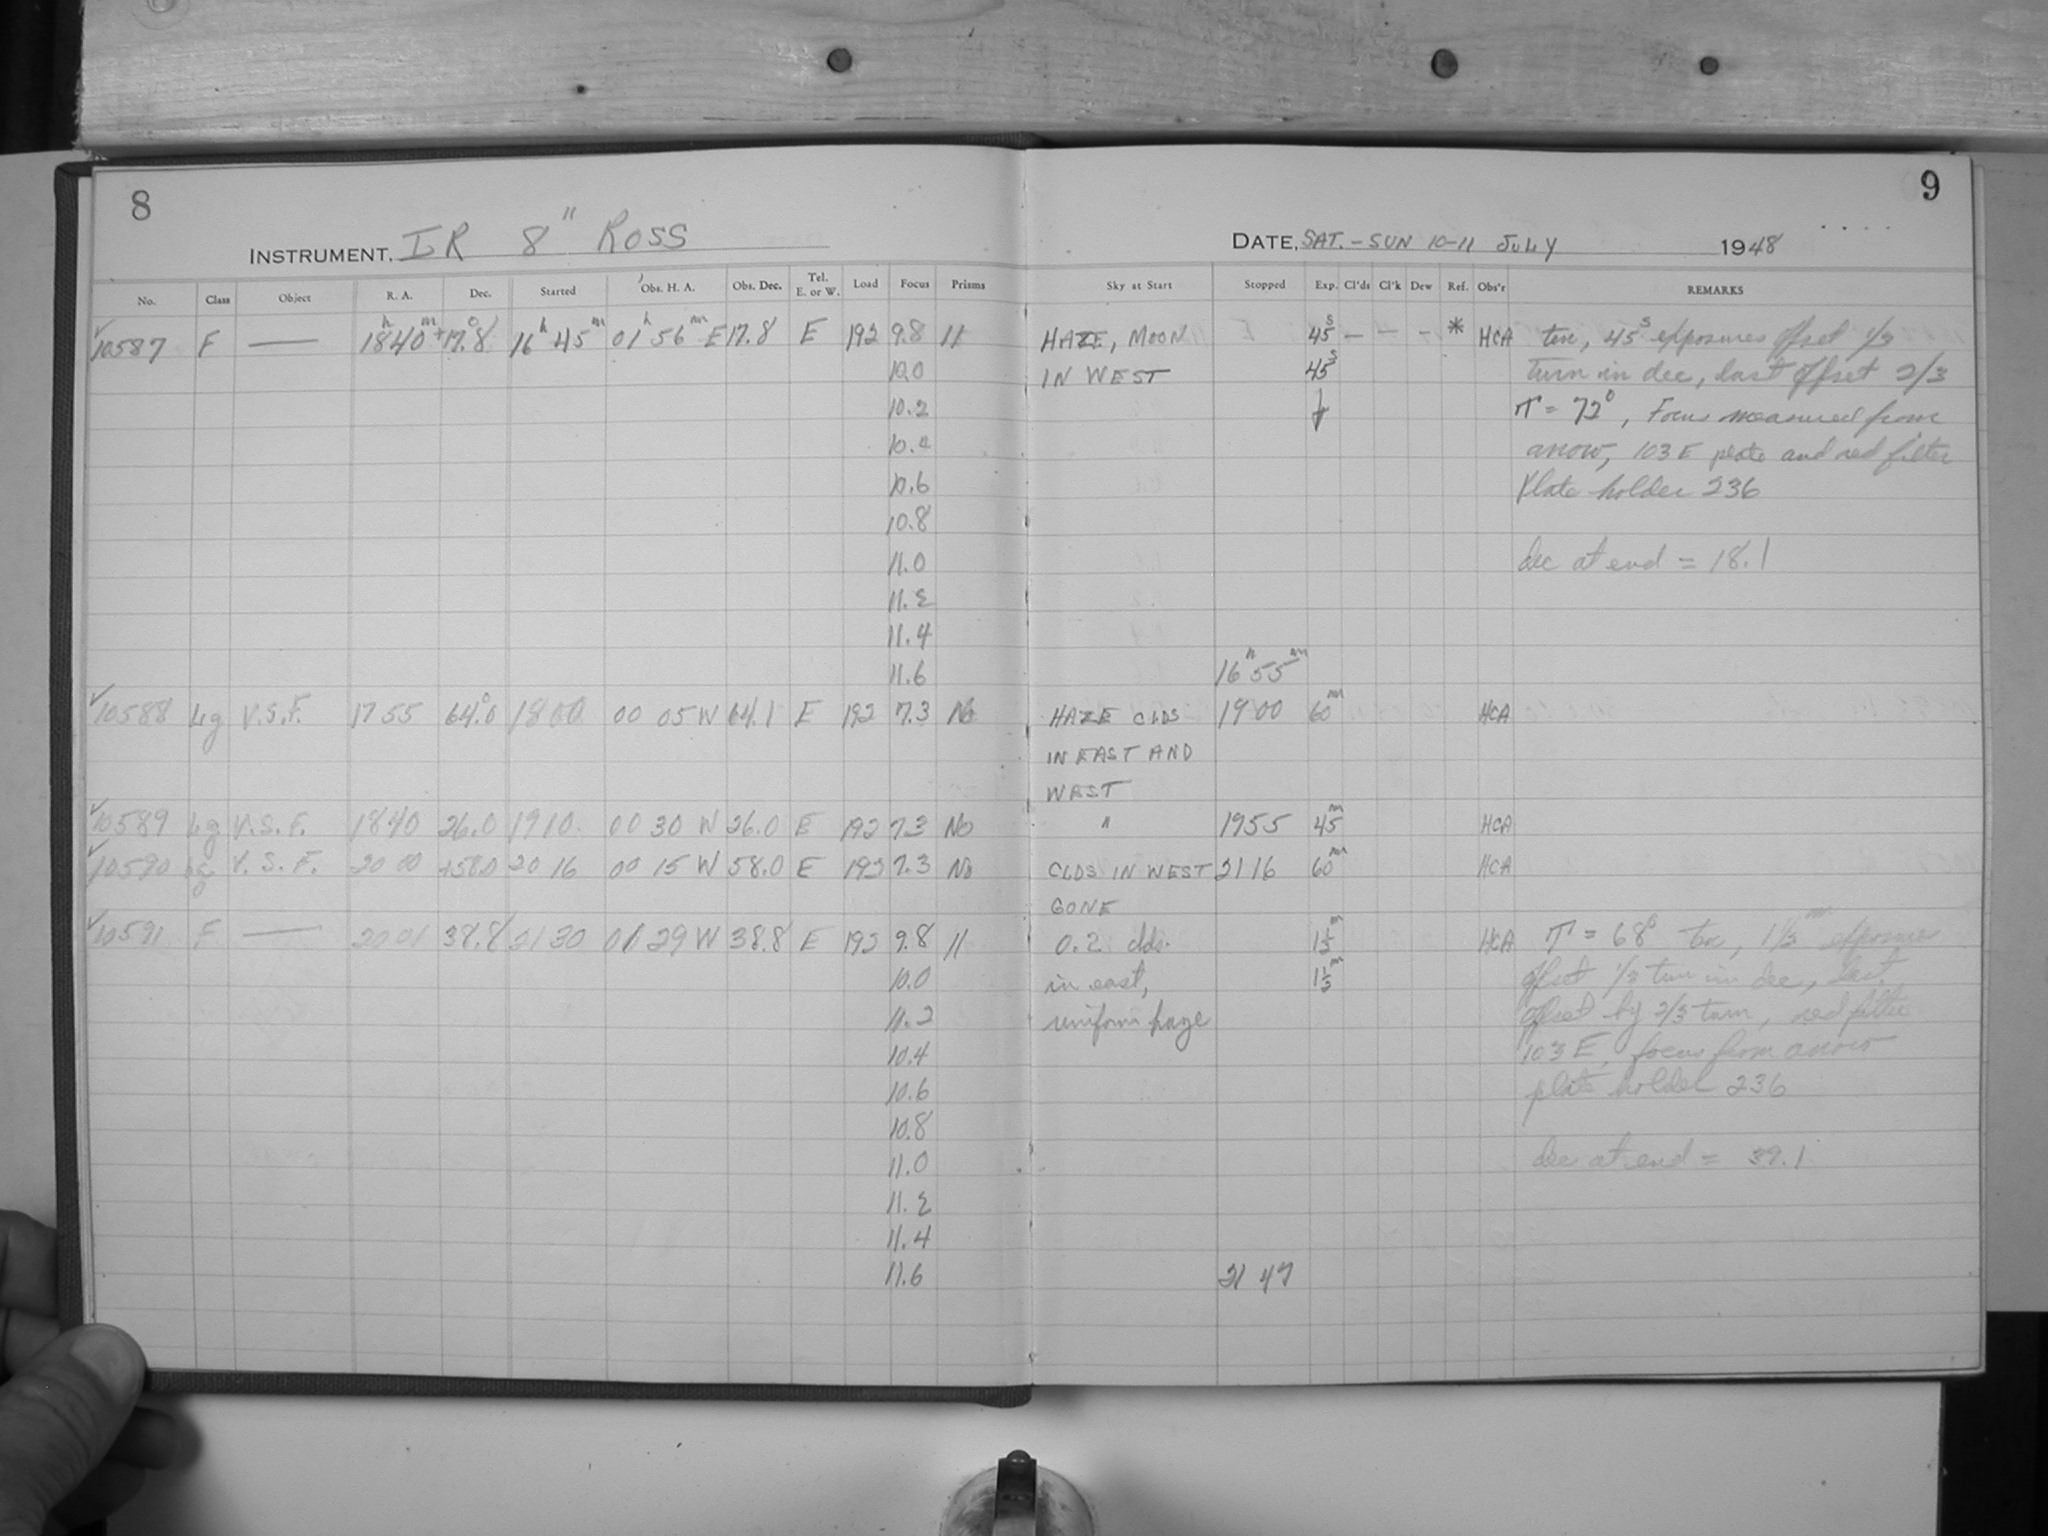 8
9
INSTRUMENT, IR 8" ROSS
DATE, SAT. - SUN 10-11 JULY 1948
No. Class Object R. A. Dec. Started Obs. H. A. Obs. Dec. Tel. E. or W. Load Focus Prisms Sky at Start Stopped Exp. Cl'ds Cl'k Dew Ref. Obs'r REMARKS
✓10587 F — 18h 40m +17.8° 16h 45m 01h 56m E 17.8 E 192 9.8 11 HAZE, MOON 45s — — - * HCA ten, 45s exposures offset 1/3
10.0 IN WEST 45s turn in dec, last offset 2/3
10.2 T = 72°, Focus measured from
10.4 arrow, 103E plate and red filter
10.6 Plate holder 236
10.8
11.0 dec at end = 18.1
11.2
11.4
11.6 16h 55m
✓10588 Lg V.S.F. 17 55 64.0° 18 00 00 05 W 64.1 E 192 7.3 No HAZE CLDS 19 00 60m HCA
IN EAST AND
WEST
✓10589 Lg V.S.F. 18 40 26.0 19 10 00 30 W 26.0 E 192 7.3 No " 1955 45m HCA
✓10590 V.S.F. 20 00 +58.0 20 16 00 15 W 58.0 E 192 7.3 No CLDS IN WEST 21 16 60m HCA
GONE
✓10591 F — 20 01 38.8 21 30 01 29 W 38.8 E 192 9.8 11 0.2 clds. 1 1/3m HCA T = 68° ten, 1 1/3m exposure
10.0 in east, 1 1/3m offset 1/3 turn in dec, last
11.2 uniform haze offset by 2/3 turn, red filter
10.4 103E, focus from arrow
10.6 plate holder 236
10.8
11.0 dec at end = 39.1
11.2
11.4
11.6 21 47